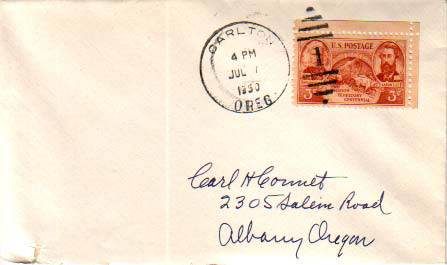 CARLTON
4 PM
JUL
1950
OREG.
1
U.S. POSTAGE
3¢
3¢
TERRITORY
CENTENNIAL
Carl H Connet
2305 Salem Road
Albany Oregon